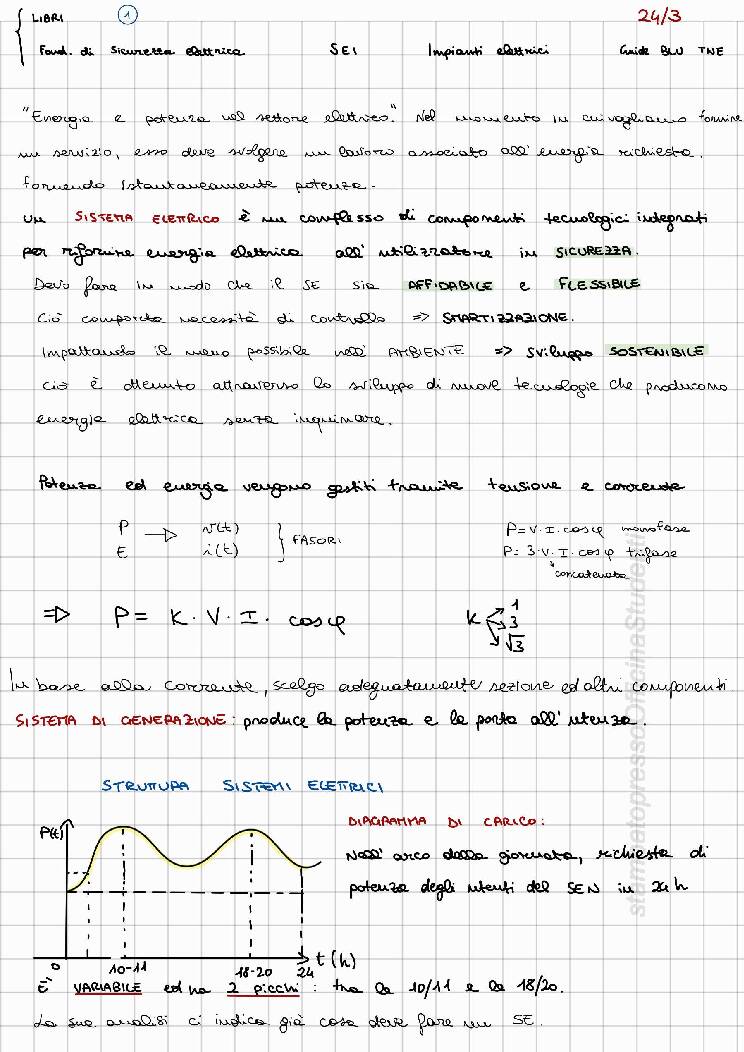 LIBRI 1 24/3
Fond. di sicurezza elettrica SEI Impianti elettrici Guide BLU TNE
"Energia e potenza nel settore elettrico". Nel momento in cui vogliamo fornire
un servizio, esso deve svolgere un lavoro associato all'energia richiesta,
fornendo istantaneamente potenza.
Un SISTEMA ELETTRICO è un complesso di componenti tecnologici integrati
per rifornire energia elettrica all'utilizzatore in SICUREZZA.
Devo fare in modo che il SE sia AFFIDABILE e FLESSIBILE
Ciò comporta necessità di controllo => SMARTIZZAZIONE.
Impattando il meno possibile nell'AMBIENTE => sviluppo SOSTENIBILE
ciò è ottenuto attraverso lo sviluppo di nuove tecnologie che producono
energia elettrica senza inquinare.
Potenza ed energia vengono gestiti tramite tensione e corrente
P → v(t) P=V·I·cosφ monofase
E i(t) } FASORI P=3·V·I·cosφ trifase
concatenata
⇒ P= K·V·I·cosφ K 1 3 √3
In base alla corrente, scelgo adeguatamente sezione ed altri componenti
SISTEMA DI GENERAZIONE: produce la potenza e la porta all'utenza.
STRUTTURA SISTEMI ELETTRICI
P(t) DIAGRAMMA DI CARICO:
Nell'arco della giornata, richiesta di
potenza degli utenti del SEN in 24h
0 10-11 18-20 24 t(h)
E' VARIABILE ed ha 2 picchi: tra le 10/11 e le 18/20.
La sua analisi ci indica già cosa deve fare un SE.
stampatopressoOfficinaStudenti